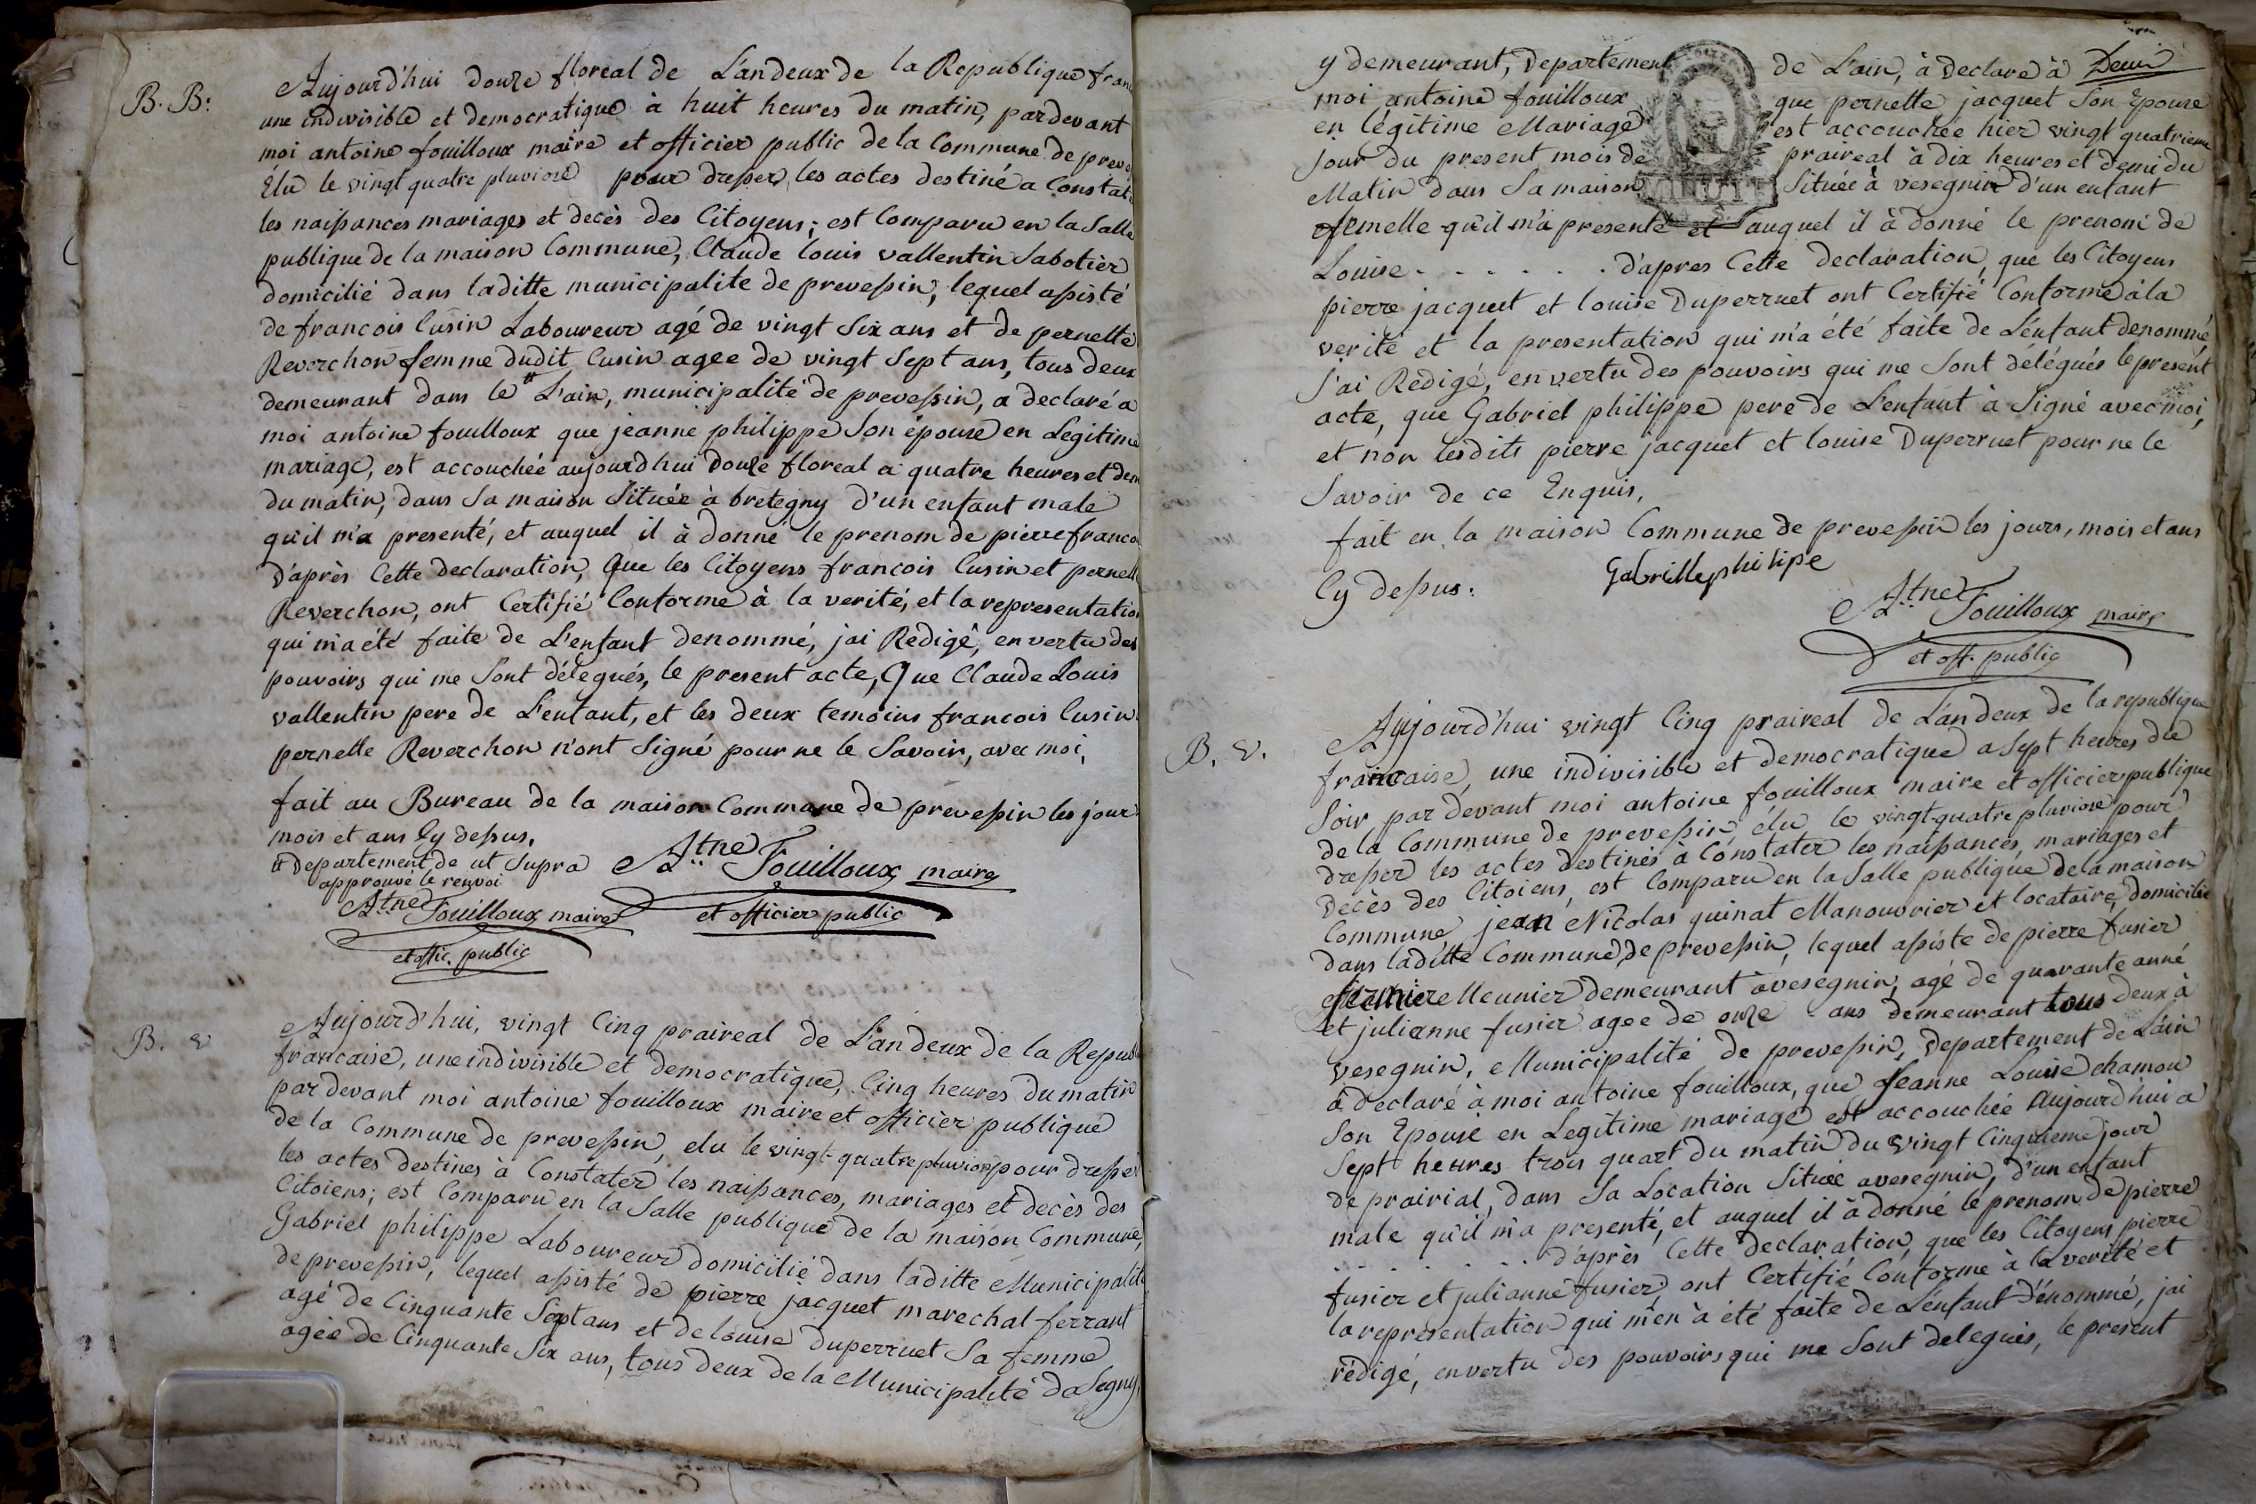 B. B:
Aujourd'hui douze floreal de L'andeux de la Republique fran
une indivisible et democratique à huit heures du matin, pardevant
moi antoine fouilloux maire et officier public de la Commune de preve
Élu le vingt quatre pluviose pour dresser les actes destiné a Constat
les naissances mariages et decès des Citoyens; est Comparu en la Salle
publique de la maison Commune, Claude louis vallentin Sabotier
domicilié dans laditte municipalite de prevessin, lequel assisté
de francois lusin Laboureur agé de vingt Six ans et de pernette
Reverchon femme dudit lusin agee de vingt Sept ans, tous deux
demeurant dans le # L'ain, municipalité de prevessin, a declaré a
moi antoine fouilloux que jeanne philippe Son épouse en Legitime
mariage, est accouchée aujourd'hui douze floreal a quatre heures et dem
du matin, dans Sa maison Située à bretegny d'un enfant male
qu'il m'a presenté, et auquel il à donné le prenom de pierre franco
D'après Cette declaration, Que les Citoyens francois lusin et pernett
Reverchon, ont Certifié Conforme à la verité, et la representation
qui m'a été faite de L'enfant denommé, jai Redigé, en vertu des
pouvoirs qui me Sont délégués, le present acte, Que Claude Louis
vallentin pere de L'enfant, et les deux temoins francois lusin
pernette Reverchon n'ont Signé pour ne le Savoir, avec moi,
fait au Bureau de la maison Commune de prevessin les jour
mois et ans Cy dessus.
# departement de ut Supra
approuvé le renvoi
Atne Fouilloux maire
et officier public
Atne Fouilloux maire
et offic. public
B. v
Aujourd'hui, vingt Cinq praireal de L'andeux de la Republ
francaise, une indivisible et democratique, Cinq heures du matin
par devant moi antoine fouilloux maire et officier publique
de la Commune de prevessin, elu le vingt-quatre pluviose pour dresser
les actes destines à Constater les naissances, mariages et decès des
Citoiens; est Comparu en la Salle publique de la maison Commune,
Gabriel philippe Laboureur domicilié dans laditte Municipalité
de prevessin, lequel assisté de pierre jacquet marechal ferrant
agé de Cinquante Sept ans et de louise Duperruet Sa femme
agée de Cinquante Six ans, tous deux de la Municipalité de Segny,
y demeurant, Departement de L'ain, à declaré à
moi antoine fouilloux que pernette jacquet Son Epouse
en légitime Mariage est accouchée hier vingt quatrieme
jour du present mois de praireal à dix heures et demi du
Matin dans Sa maison Située à vesegnin d'un enfant
femelle qu'il m'a presenté et auquel il à donné le prenom de
Louise . . . . . . . D'apres Cette declaration, que les Citoyens
pierre jacquet et louise Duperruet ont Certifié Conforme à la
verité et la presentation qui m'a été faite de L'enfant denommé,
J'ai Redigé, en vertu des pouvoirs qui me Sont délégués le present
acte, que Gabriel philippe pere de L'enfant à Signé avec moi,
et non lesdits pierre jacquet et louise Duperruet pour ne le
Savoir de ce Enquis,
fait en la maison Commune de prevessin les jours, mois et ans
Cy dessus:
Gabrille philipe
Atne Fouilloux maire
et off. public
B. v.
Aujourd'hui vingt Cinq praireal de L'an deux de la republique
francaise, une indivisible et democratique a Sept heures du
Soir par devant moi antoine fouilloux maire et officier publique
de la Commune de prevessin élu le vingt-quatre pluviose pour
dresser les actes destinés à Constater les naissances, mariages et
Decès des Citoiens, est Comparu en la Salle publique de la maison
Commune jean Nicolas quinat Manouvrier et locataire, domicilié
dans laditte Commune de prevessin, lequel assiste de pierre fusier
Meunier demeurant à vesegnin, agé de quarante anné
et julianne fusier agee de onze ans demeurant tous deux à
vesegnin, Municipalité de prevessin, Departement de L'ain
à declaré à moi antoine fouilloux, que Jeanne Louise chamou
Son Epouse en Legitime mariage est accouchée Aujourd'hui a
Sept heures trois quart du matin du vingt Cinquieme jour
de prairial, dans Sa Location Située a vesegnin, d'un enfant
male qu'il m'a presenté, et auquel il à donné le prenom de pierre
. . . . . . . . D'après Cette declaration, que les Citoyens pierre
fusier et julianne fusier, ont Certifié Conforme à la verité et
la representation qui m'en à été faite de L'enfant dénommé, jai
rédigé, en vertu des pouvoirs qui me Sont delegués, le present